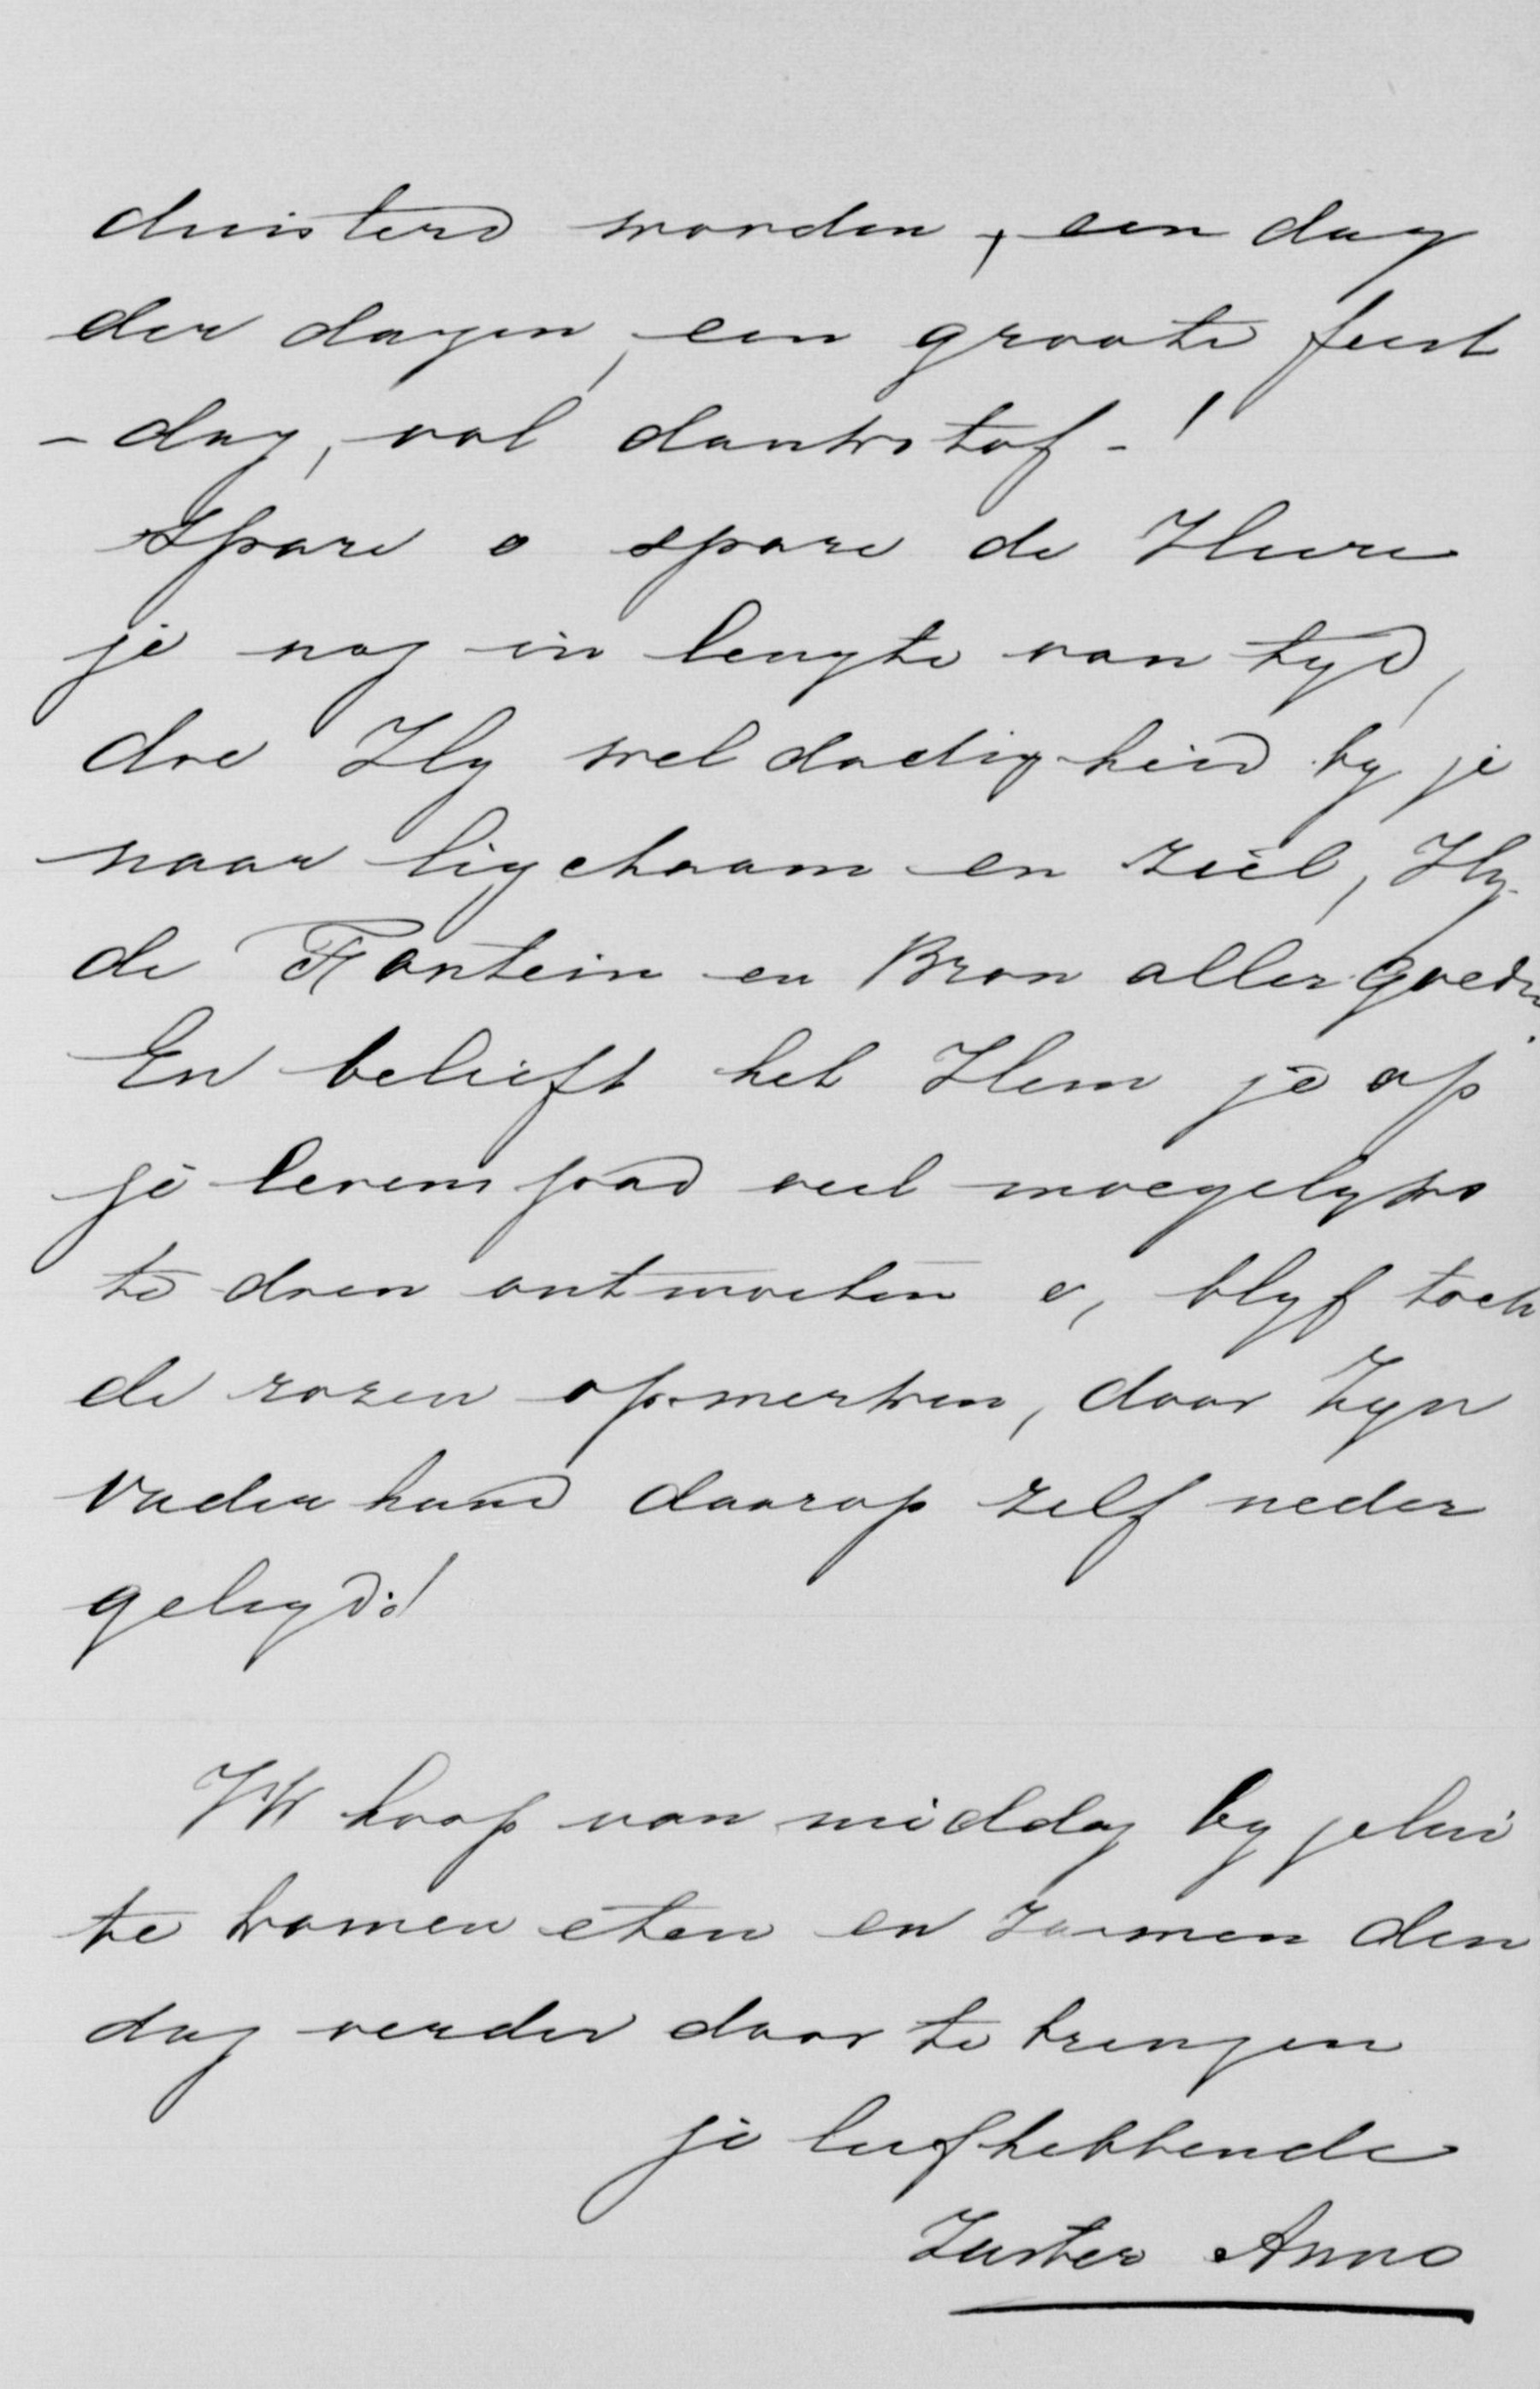 duisterd worden, een dag
der dagen, een groote feest
- dag, vol dankstof -!
Spare o spare de Heere
je nog in lengte van tyd,
doe Hy wel dadig heid by je
naar ligchaam en ziel, Hy
de Fontein en Bron aller goeden.
En belieft het Hem je op
je levens pad veel moegelyks
te doen ontmoeten o, blyf toch
de rozen opmerken, door Zyn
Vader hand daarop zelf neder
gelegd!
Ik hoop van middag by jelui
te komen eten en zamen den
dag verder door te brengen
je liefhebbende
Zuster Anna